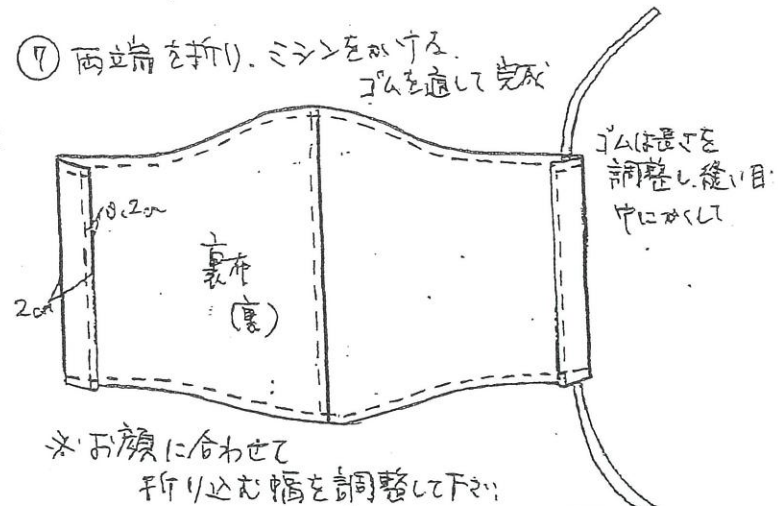 ⑦ 両端を折り、ミシンをかける.
ゴムを通して完成
ゴムは長さを
調整し、縫い目
中にかくして
0.2cm
2cm
裏布
(裏)
※お顔に合わせて
折り込む幅を調整して下さい